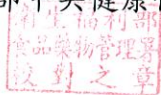 部中央健康
衛生福利部
食品藥物管理署
校對之章